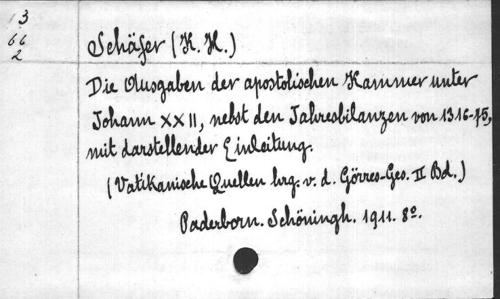 13
66
2
Schäfer (K. H.)
Die Ausgaben der apostolischen Kammer unter
Johann XXII, nebst den Jahresbilanzen von 1316-75,
mit darstellender Einleitung.
(Vatikanische Quellen hrg. v. d. Görres-Ges. II Bd.)
Paderborn. Schöningh. 1911. 8º.